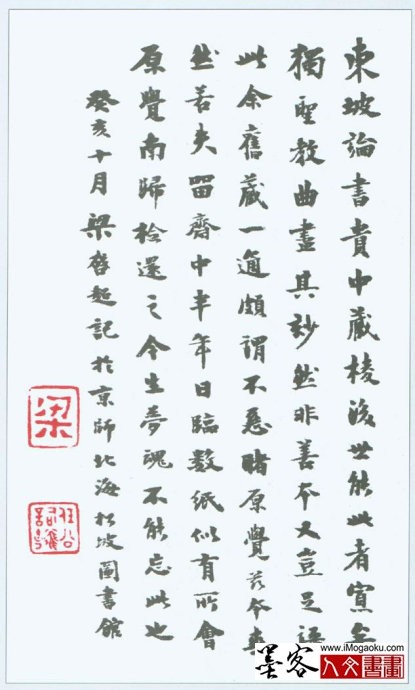 東坡論書貴中藏棱後世能此者寡矣
獨聖教曲盡其妙然非善本又豈足語
此余舊藏一通頗謂不惡睹原覺茲本爽
然若失留齋中半年日臨數紙似有所會
原覺南歸檢還之今生夢魂不能忘此也
癸亥十月梁啓超記於京師北海松坡圖書館
梁
任公
墨客
人文書畫
www.iMogaoku.com